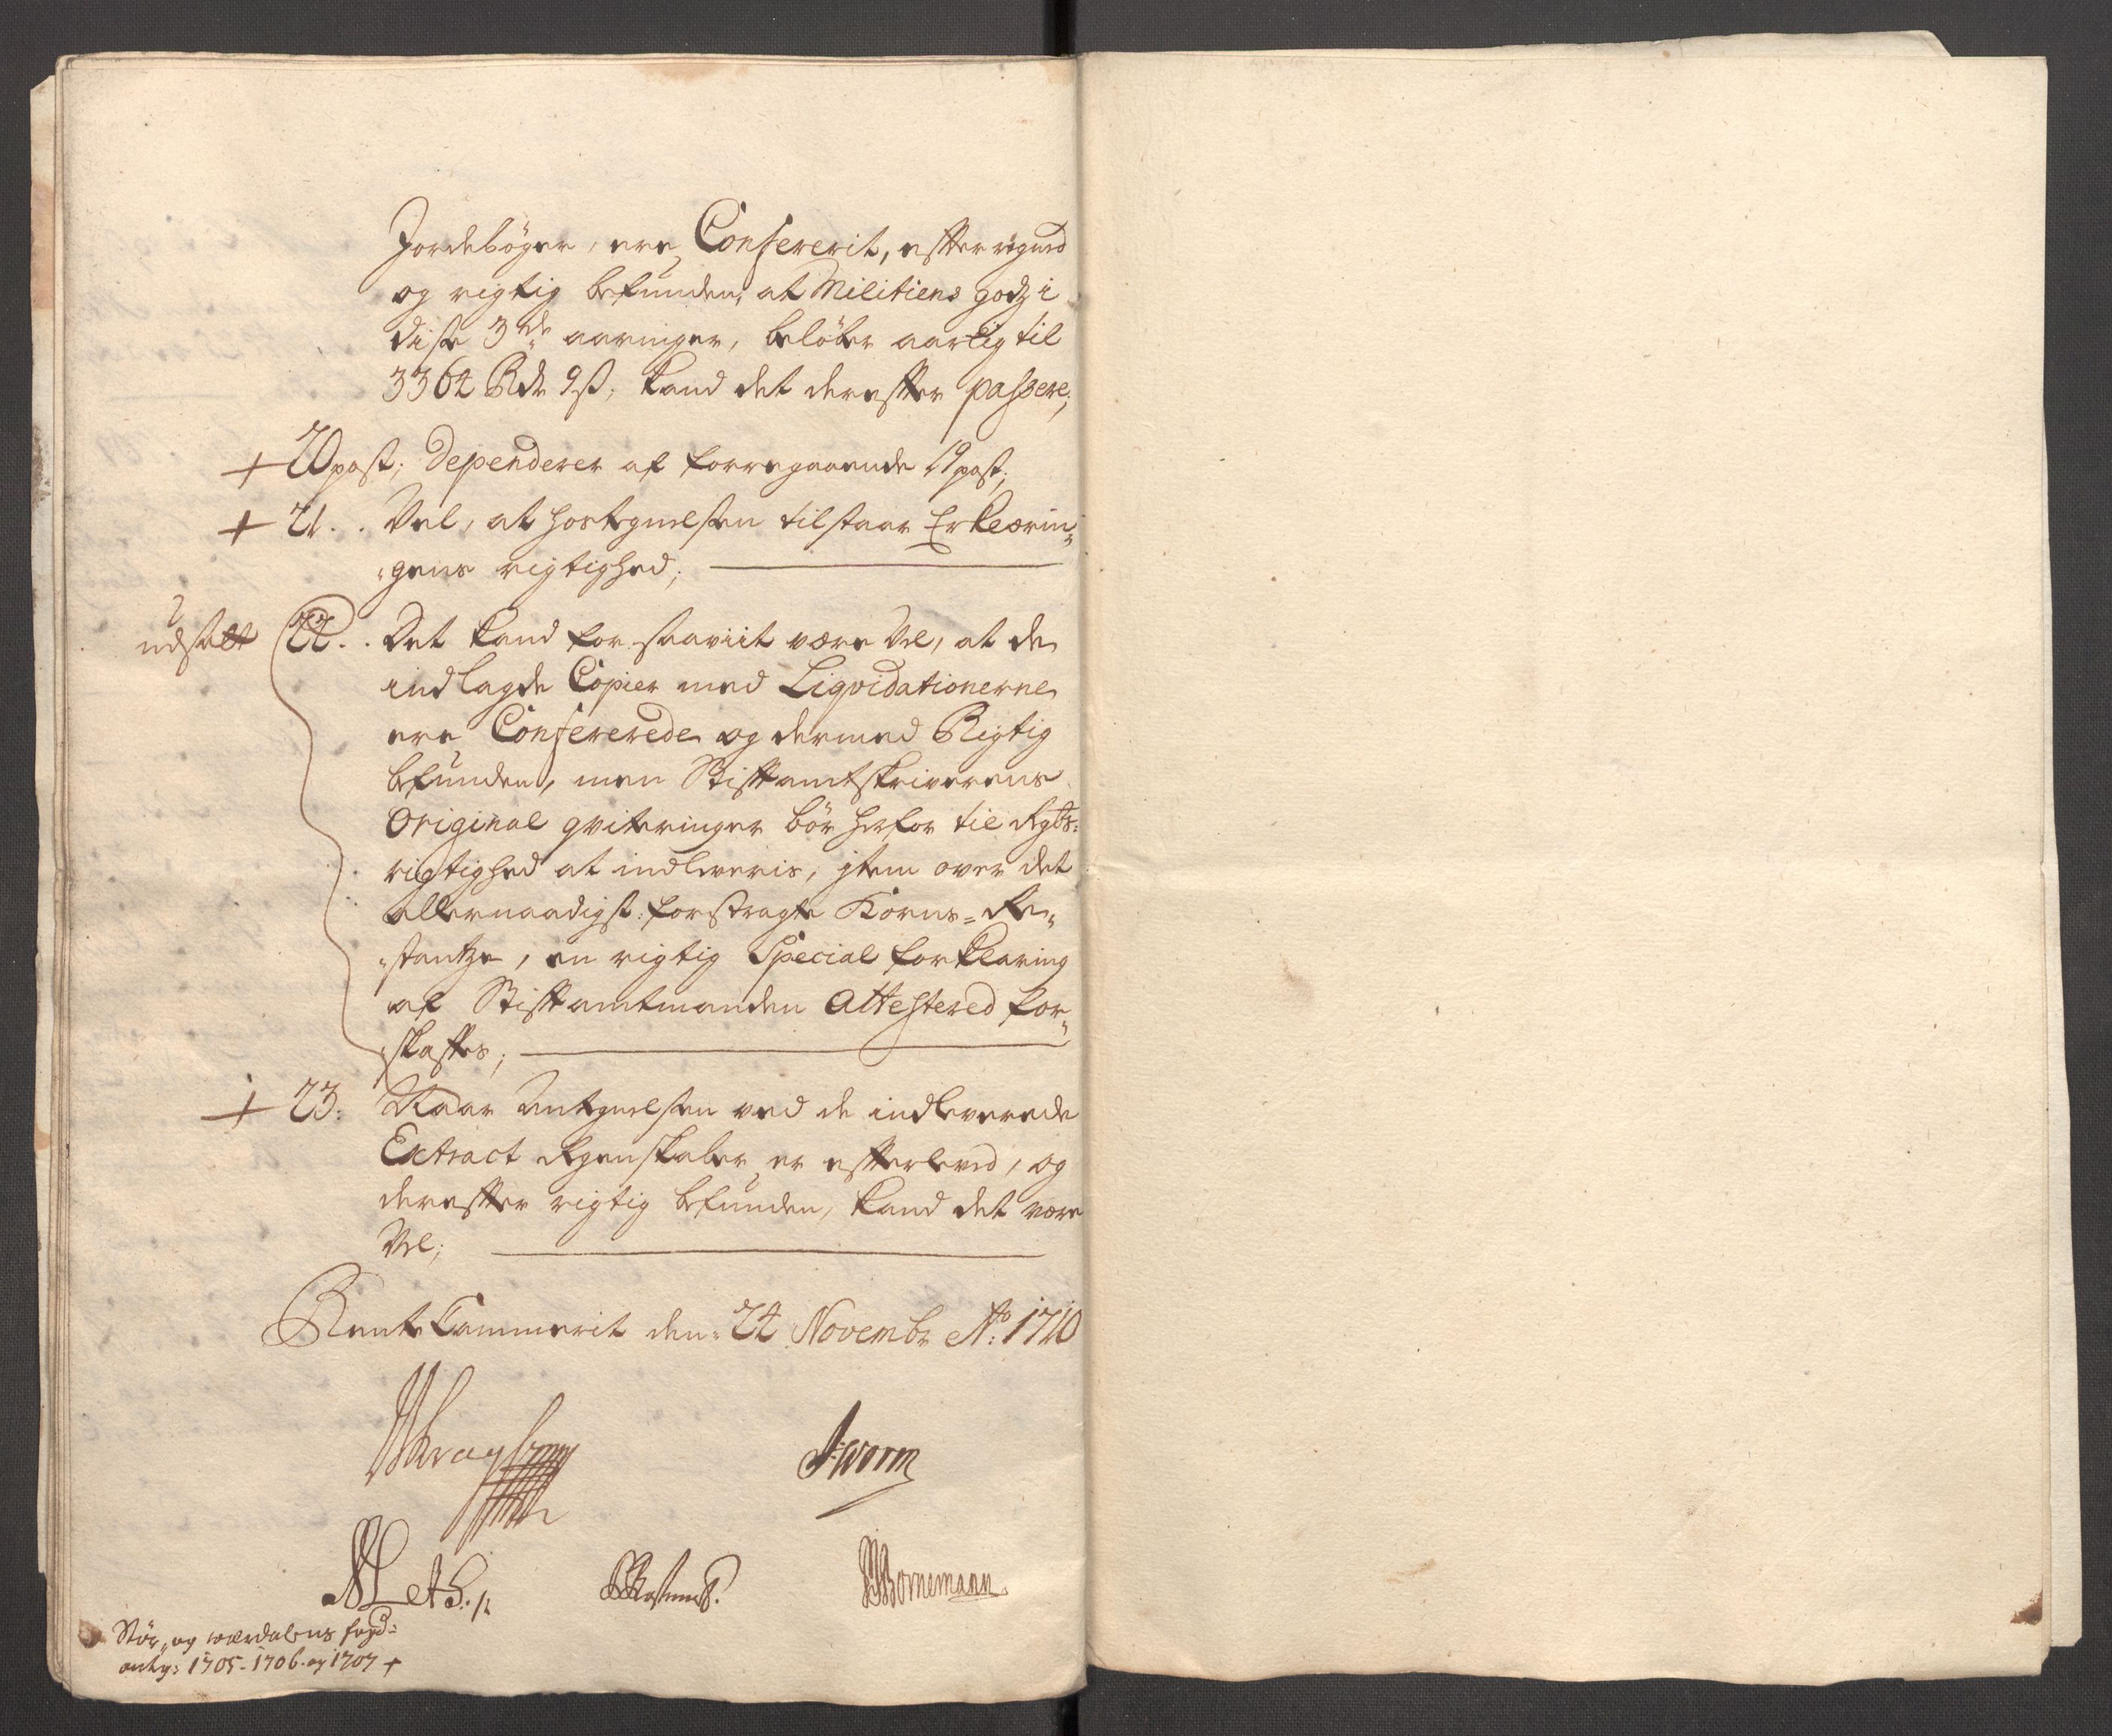 Jordebøger, ere Confererit, effterregned
og rigtig befunden, at Militiens godz i
diße 3de aaringer, beløber aarlig til
3364 Rdr 9 ß, kand det dereffter passere;
+ 20 post; Dependerer af forregaaende 19 post;
+ 21. . Vel, at hostegnelsen tilstaar Erklærin-
gens rigtighed;
udsatt 22. . Det kand for saaviit være Vel, at de
indlagde Copier med Liqvidationerne
ere Confererede og dermed Rigtig
befunden, men Stifftamtskriverens
Original qviteringer bør herfor til Rgbs:
rigtighed at indleveris, jtem over det
allernaadigst: forstragte Korns-Re-
stantze, en rigtig Special forklaring
af Stifftamtmanden Attestered for-
skaffes;
+ 23: Naar Antegnelsen ved de indleverede
Extract Regenskaber er effterlevd, og
dereffter rigtig befunden, kand det være
Vel;
RenteCammerit den: 24 Novembr Ao: 1710
Worm
Bornemann
Stør, og Værdalens fogd:
antg: 1705 - 1706 - og 1707 +